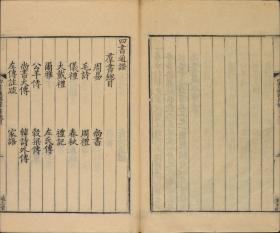 四書通證
羣書總目
周易
尚書
毛詩
周禮
儀禮
春秋
大戴禮
禮記
爾雅
左氏傳
公羊傳
穀梁傳
尚書大傳
韓詩外傳
左傳註疏
家語